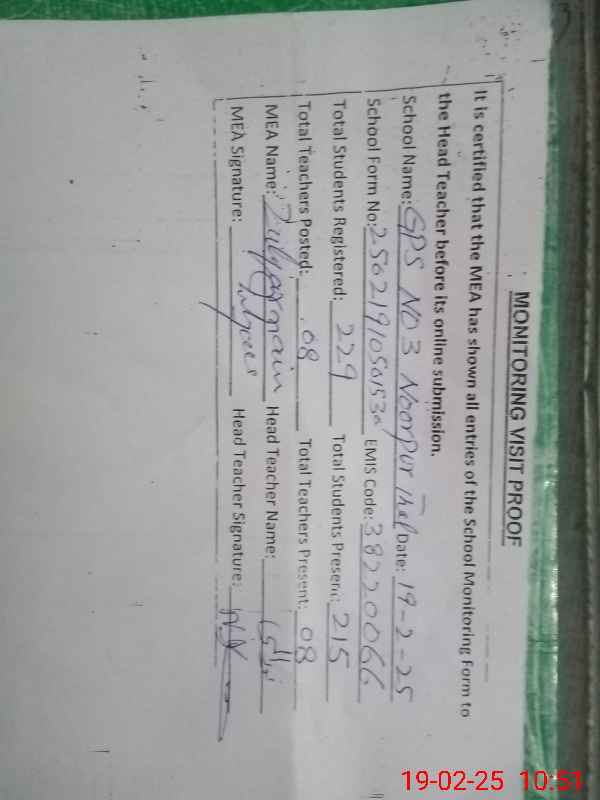 MONITORING VISIT PROOF
It is certified that the MEA has shown all entries of the School Monitoring Form to
the Head Teacher before its online submission.
School Name: GPS NO 3 Noorpur Thal Date: 19-2-25
School Form No: EMIS Code: 38220066
Total Students Registered: 229 Total Students Present: 215
Total Teachers Posted: 08 Total Teachers Present: 08
MEA Name: Head Teacher Name:
MEA Signature: Head Teacher Signature:
19-02-25 10:51